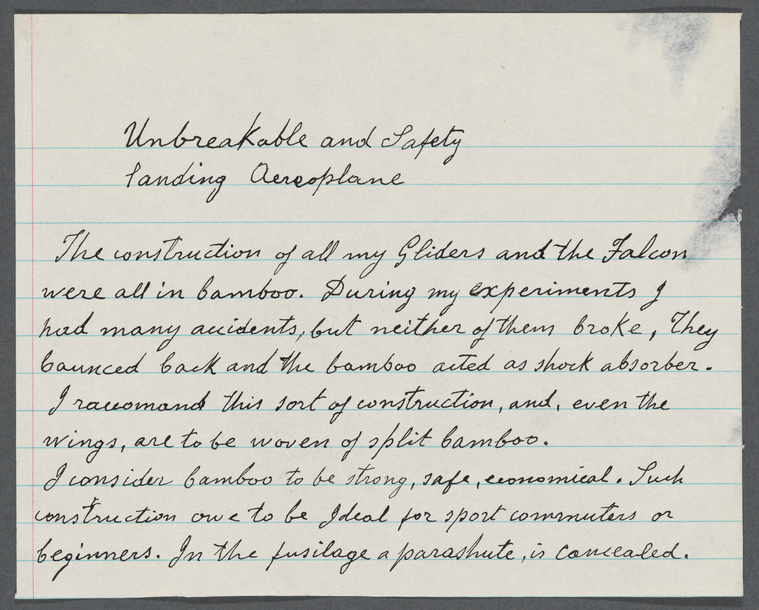 Unbreakable and Safety
landing Aereoplane
The construction of all my Gliders and the Falcon
were all in bamboo. During my experiments I
had many accidents, but neither of them broke, They
bounced back and the bamboo acted as shock absorber.
I raccomand this sort of construction, and, even the
wings, are to be woven of split bamboo.
I consider bamboo to be strong, safe, economical. Such
construction owe to be Ideal for sport commuters or
beginners. In the fusilage a parashute, is concealed.